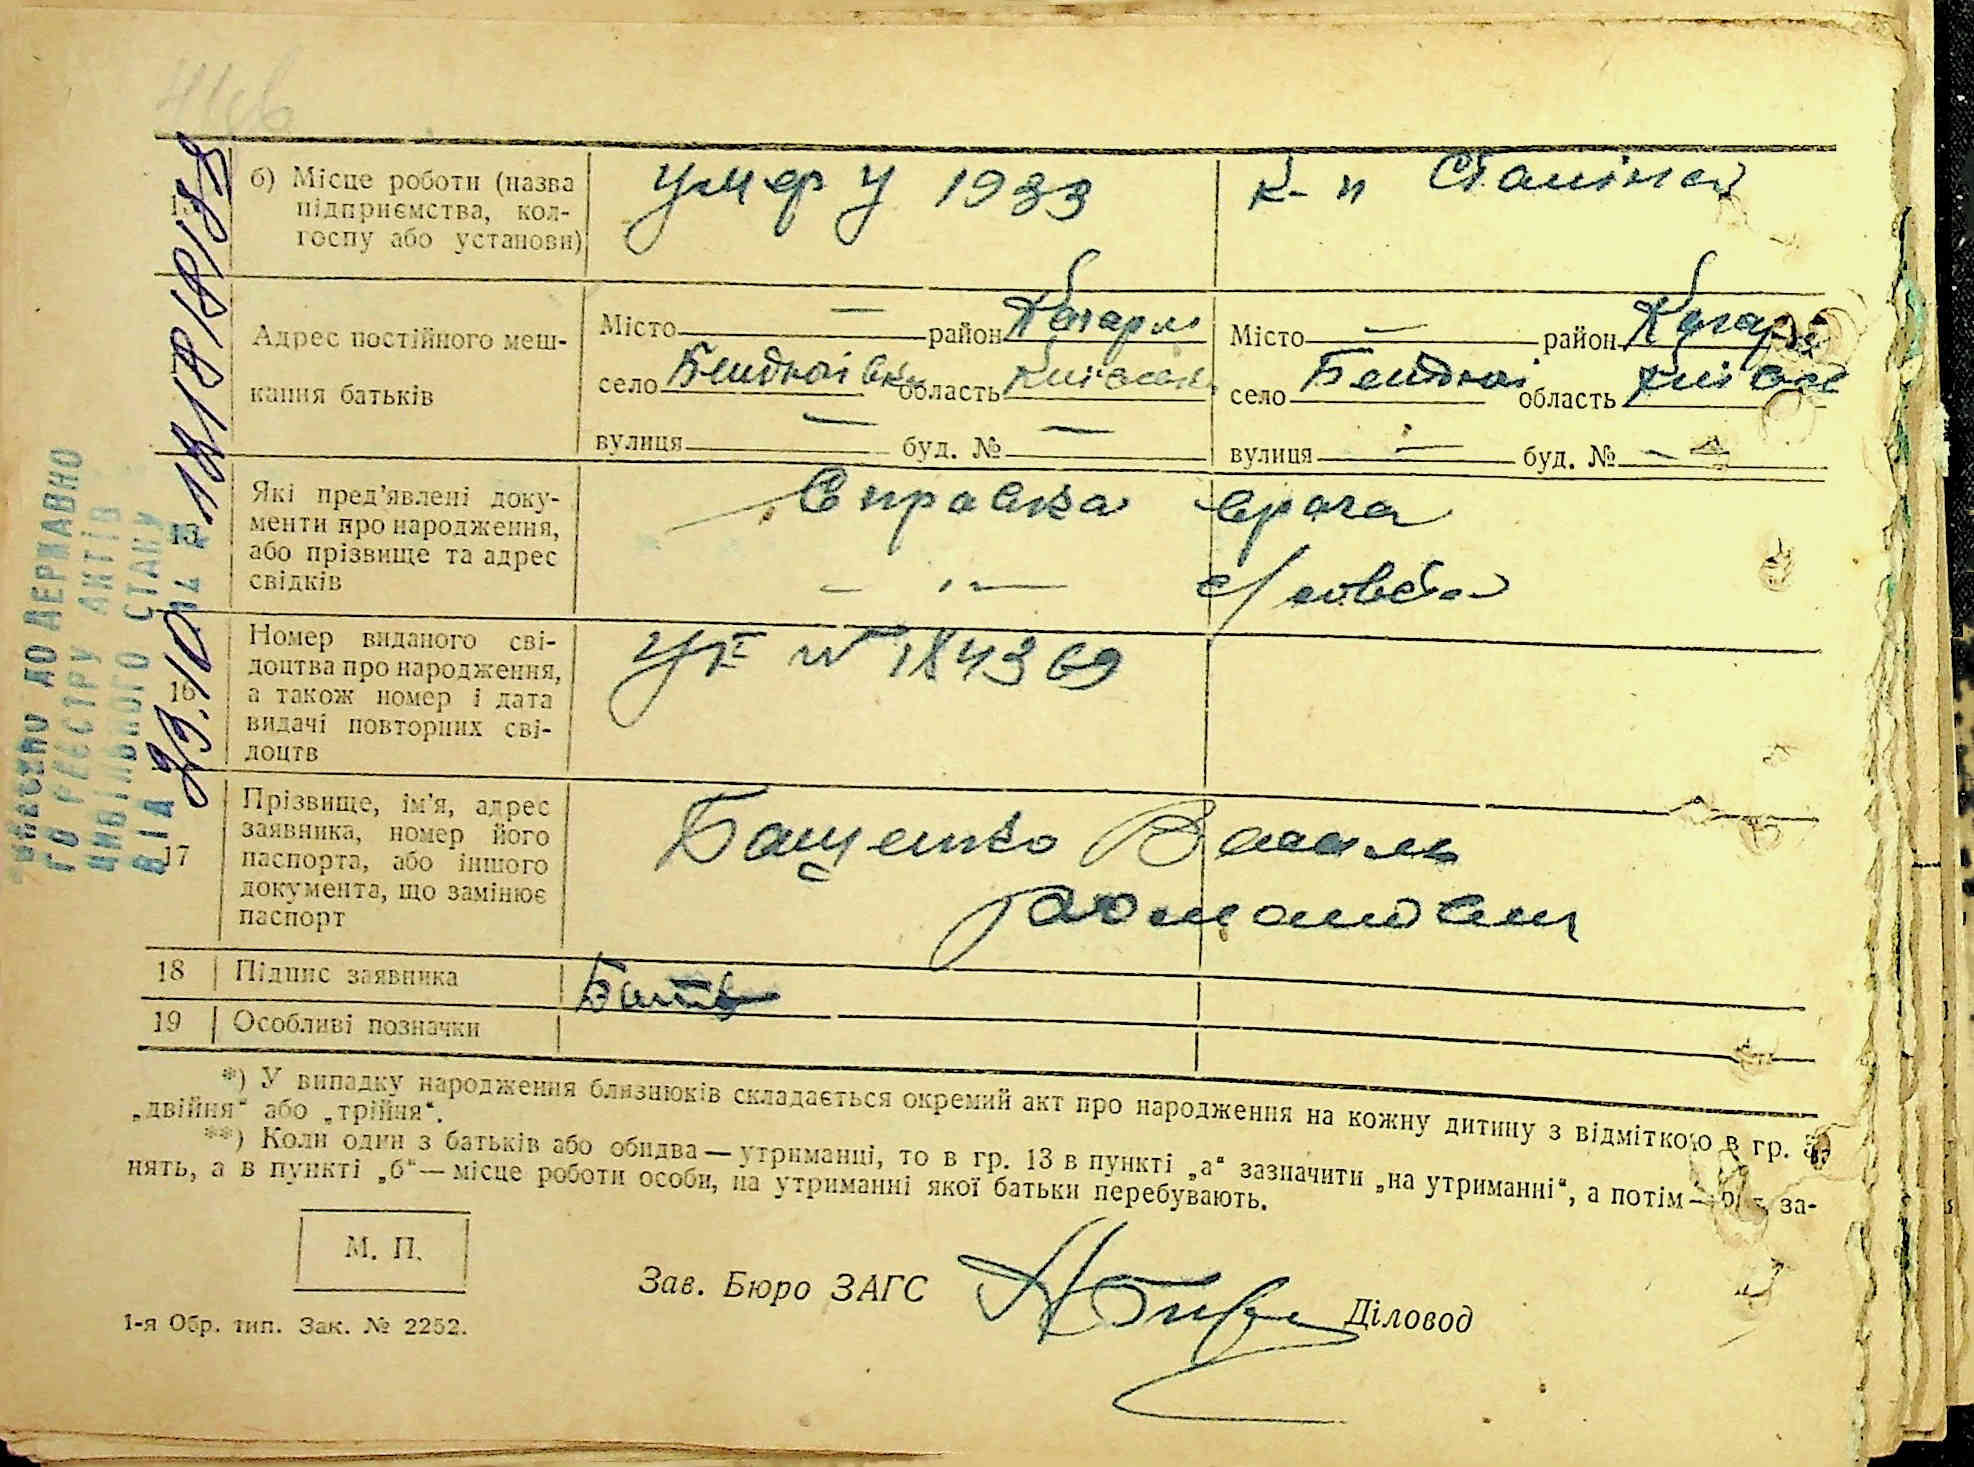 б) Місце роботи (назва
підприємства, кол-
госпу або установи)
умер у 1933
к-п Сталіна
Адрес постійного меш-
кання батьків
Місто — район Кагарли
село область Київськ
вулиця — буд. № —
Місто — район Кагар
село область Київс
вулиця — буд. № —
15
Які пред'явлені доку-
менти про народження,
або прізвище та адрес
свідків
Справка врача
— „ — с/совета
16
Номер виданого сві-
доцтва про народження,
а також номер і дата
видачі повторних сві-
доцтв
№ 184369
17
Прізвище, ім'я, адрес
заявника, номер його
паспорта, або іншого
документа, що замінює
паспорт
Бащенко Василь
18 Підпис заявника
19 Особливі позначки
*) У випадку народження близнюків складається окремий акт про народження на кожну дитину з відміткою в гр. 5
„двійня“ або „трійня“.
**) Коли один з батьків або обидва — утриманці, то в гр. 13 в пункті „а“ зазначити „на утриманні“, а потім — за-
нять, а в пункті „б“ — місце роботи особи, на утриманні якої батьки перебувають.
М. П.
Зав. Бюро ЗАГС
Діловод
1-я Обр. тип. Зак. № 2252.
ВНЕСЕНО ДО ДЕРЖАВНО
ГО РЕЄСТРУ АКТІВ
ЦИВІЛЬНОГО СТАНУ
ВІД